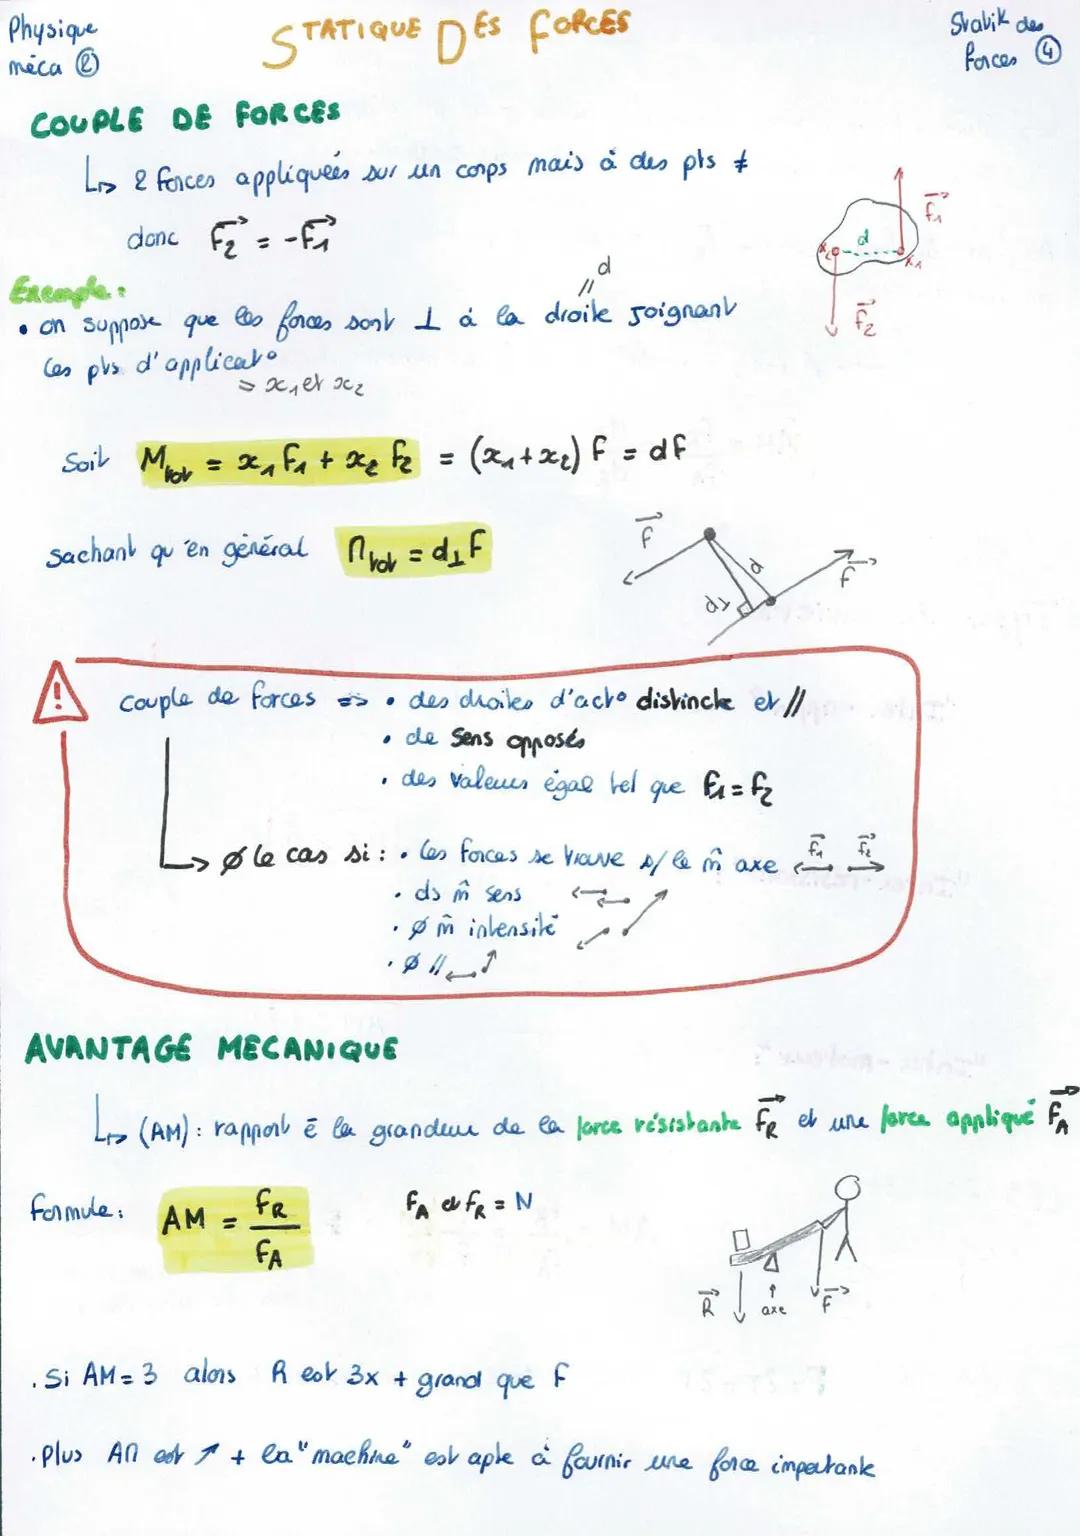 Physique
méca ②
STATIQUE DES FORCES
Statik des
forces ④
COUPLE DE FORCES
↳ 2 forces appliquées sur un corps mais à des pts ≠
donc F₂ = -F₁
F₁
d
x₂
x₁
F₂
Exemple :
d
• on suppose que les forces sont ⊥ à la droite joignant
les pts d'applicat°
= x₁ et x₂
Soit Mtot = x₁ F₁ + x₂ F₂ = (x₁+x₂) F = dF
sachant qu'en général Mtot = d⊥F
F
d
d⊥
F
! couple de forces => • des droites d'act° distincte et //
• de sens opposés
• des valeurs égal tel que F₁ = F₂
→ ∅ le cas si : • les forces se trouve s/ le m̂ axe F₁ F₂
• ds m̂ sens
• ∅ m̂ intensité
• ∅ //
AVANTAGE MECANIQUE
↳ (AM) : rapport ē la grandeur de la force résistante FR et une force appliqué FA
Formule : AM = FR / FA
FA et FR = N
R
axe
F
. Si AM = 3 alors R est 3x + grand que F
. Plus AM est ↗ + la "machine" est apte à fournir une force importante